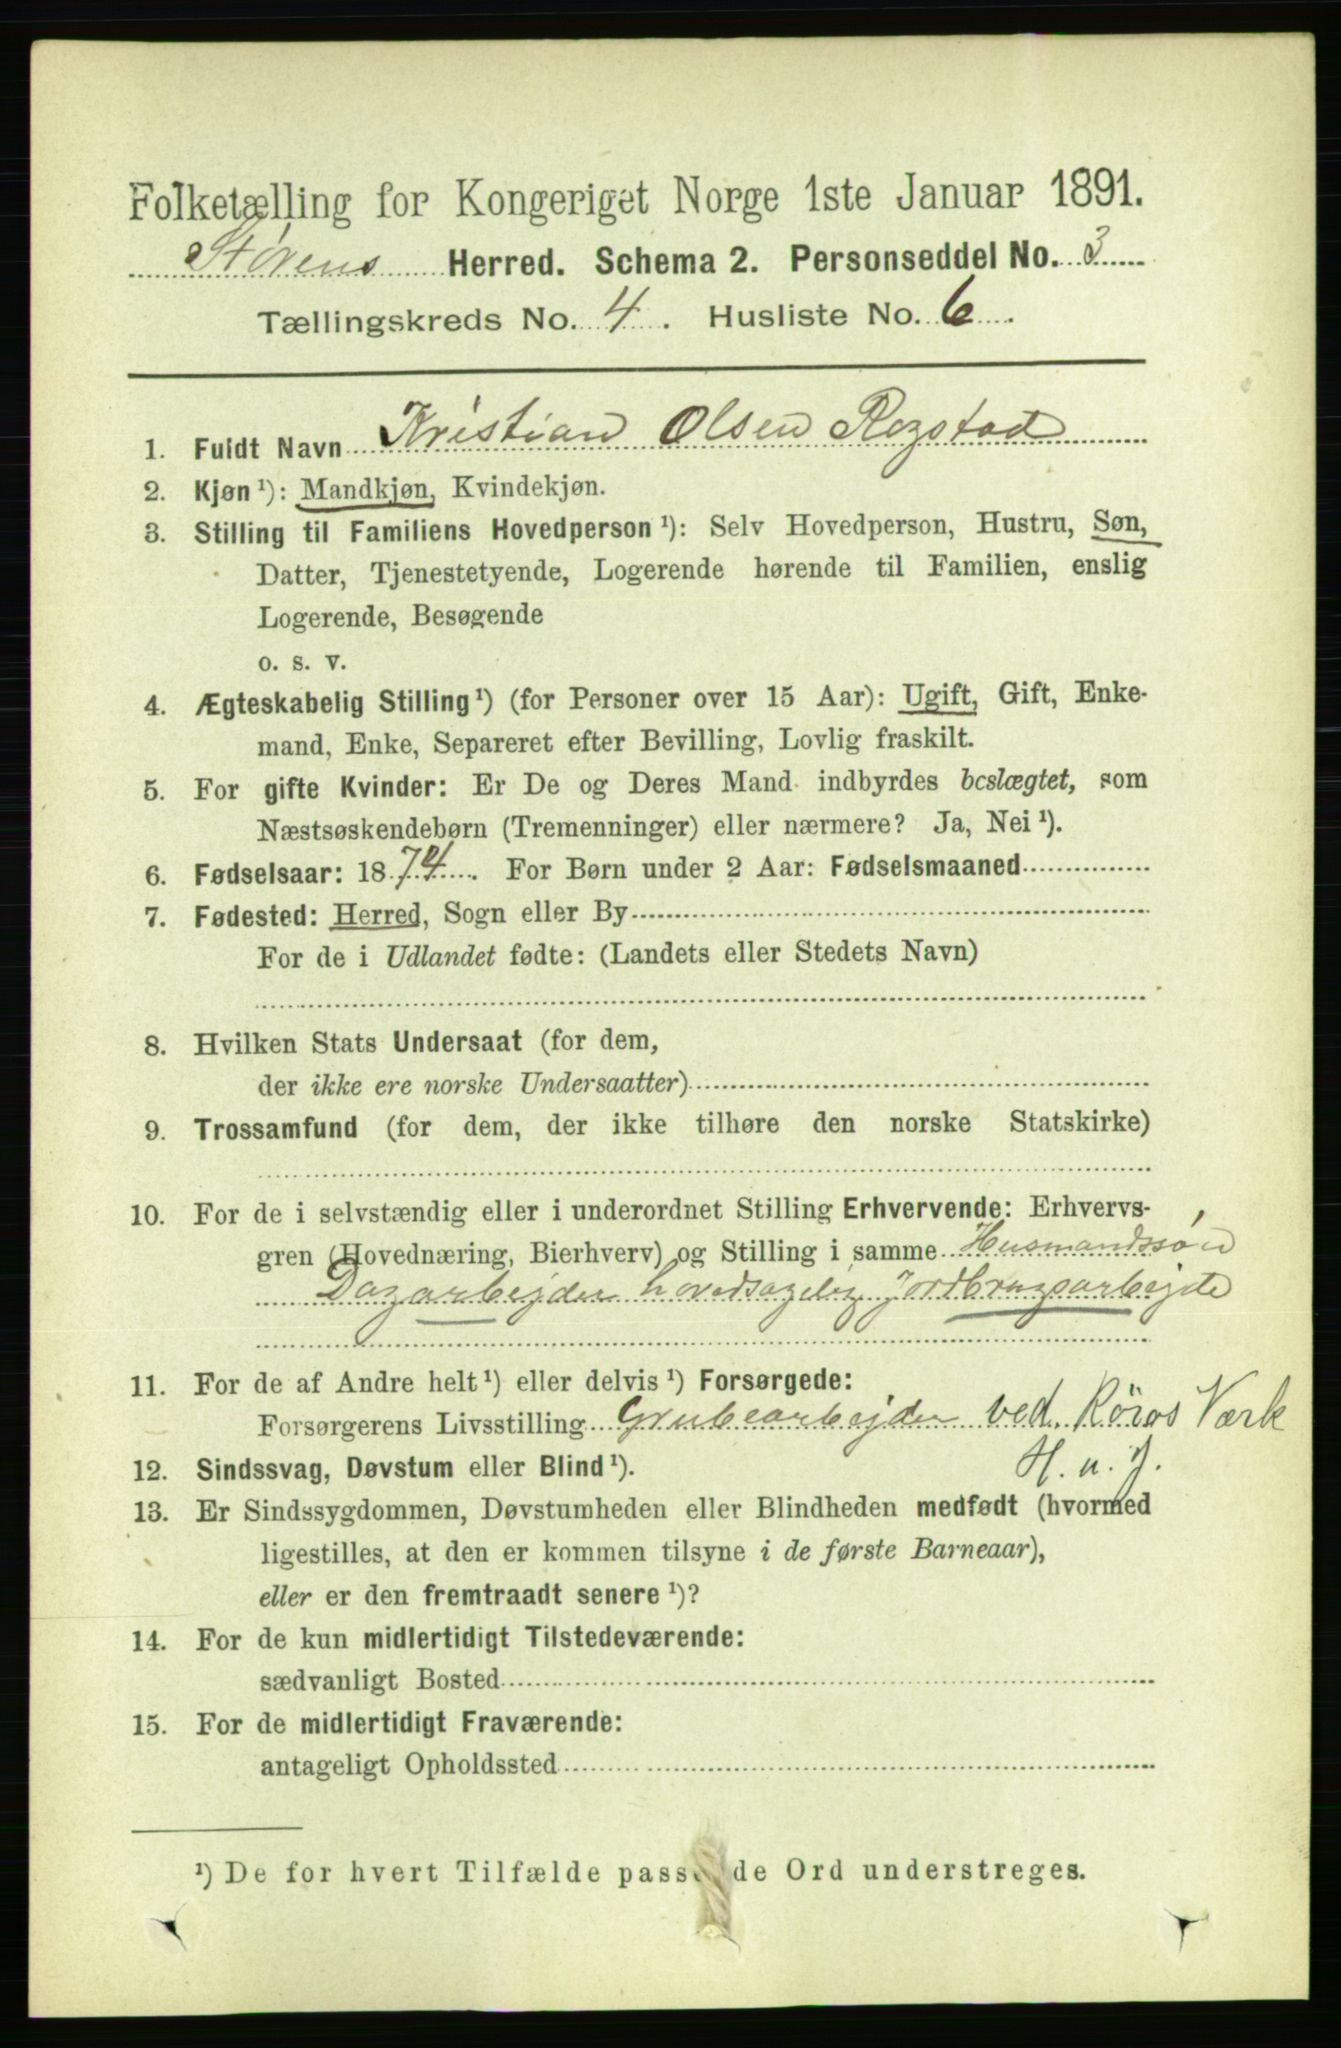 Folketælling for Kongeriget Norge 1ste Januar 1891.
Størens Herred. Schema 2. Personseddel No. 3
Tællingskreds No. 4. Husliste No. 6.
1. Fuldt Navn Kristian Olsen Rogstad
2. Kjøn ¹): Mandkjøn, Kvindekjøn.
3. Stilling til Familiens Hovedperson ¹): Selv Hovedperson, Hustru, Søn,
Datter, Tjenestetyende, Logerende hørende til Familien, enslig
Logerende, Besøgende
o. s. v.
4. Ægteskabelig Stilling ¹) (for Personer over 15 Aar): Ugift, Gift, Enke-
mand, Enke, Separeret efter Bevilling, Lovlig fraskilt.
5. For gifte Kvinder: Er De og Deres Mand indbyrdes beslægtet, som
Næstsøskendebørn (Tremenninger) eller nærmere? Ja, Nei ¹).
6. Fødselsaar: 1874. For Børn under 2 Aar: Fødselsmaaned
7. Fødested: Herred, Sogn eller By
For de i Udlandet fødte: (Landets eller Stedets Navn)
8. Hvilken Stats Undersaat (for dem,
der ikke ere norske Undersaatter)
9. Trossamfund (for dem, der ikke tilhøre den norske Statskirke)
10. For de i selvstændig eller i underordnet Stilling Erhvervende: Erhvervs-
gren (Hovednæring, Bierhverv) og Stilling i samme Husmandssøn
Dagarbejder hovedsagelig Jordbrugsarbejde
11. For de af Andre helt ¹) eller delvis ¹) Forsørgede:
Forsørgerens Livsstilling Grubearbejder ved Röros Værk
12. Sindssvag, Døvstum eller Blind ¹). H. u. J.
13. Er Sindssygdommen, Døvstumheden eller Blindheden medfødt (hvormed
ligestilles, at den er kommen tilsyne i de første Barneaar),
eller er den fremtraadt senere ¹)?
14. For de kun midlertidigt Tilstedeværende:
sædvanligt Bosted
15. For de midlertidigt Fraværende:
antageligt Opholdssted
¹) De for hvert Tilfælde passende Ord understreges.